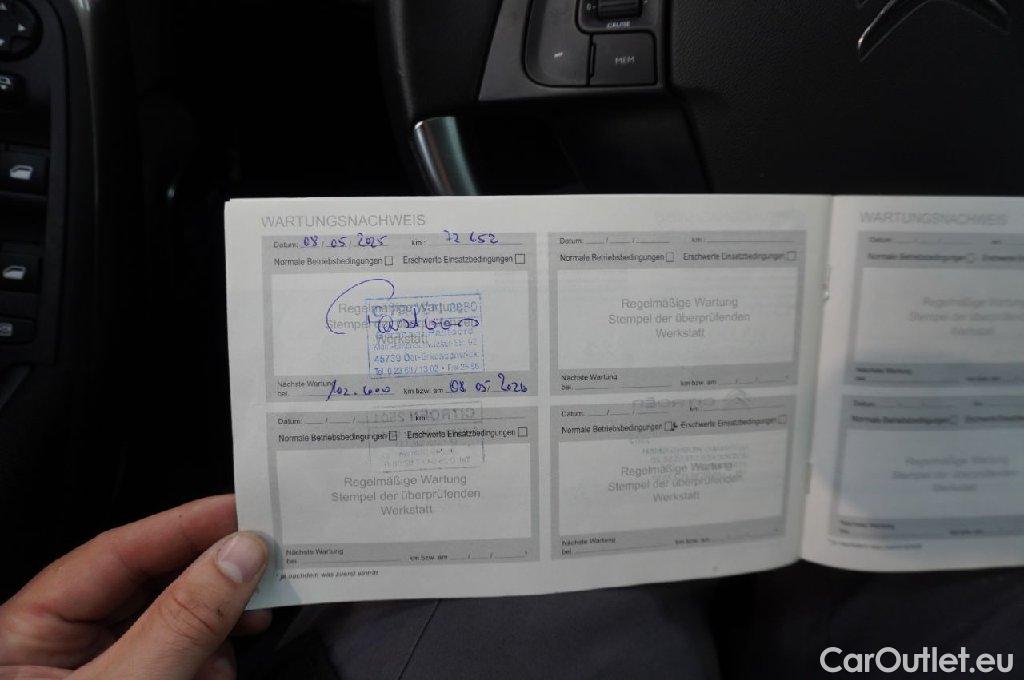 CRUISE
MEM
WARTUNGSNACHWEIS
Datum: 08/05/2025 km: 72 652
Normale Betriebsbedingungen Erschwerte Einsatzbedingungen
Regelmäßige Wartung
Stempel der überprüfenden
Werkstatt
45739 Oer-Erkenschwick
Nächste Wartung
bei 102.600 km bzw. am 08/05/2026
Datum: km:
Normale Betriebsbedingungen Erschwerte Einsatzbedingungen
Regelmäßige Wartung
Stempel der überprüfenden
Werkstatt
Nächste Wartung
bei km bzw. am
Datum: km:
Normale Betriebsbedingungen Erschwerte Einsatzbedingungen
Regelmäßige Wartung
Stempel der überprüfenden
Werkstatt
Nächste Wartung
bei km bzw. am
* je nachdem was zuerst eintritt
Datum: km:
Normale Betriebsbedingungen Erschwerte Einsatzbedingungen
Regelmäßige Wartung
Stempel der überprüfenden
Werkstatt
Nächste Wartung
bei km bzw. am
WARTUNGSNACHWEIS
Datum:
Normale Betriebsbedingungen
Regelmäßige Wartung
Stempel der überprüfenden
Werkstatt
Nächste Wartung
bei
Datum:
Normale Betriebsbedingungen
Regelmäßige Wartung
Stempel der überprüfenden
Werkstatt
Nächste Wartung
bei
CarOutlet.eu